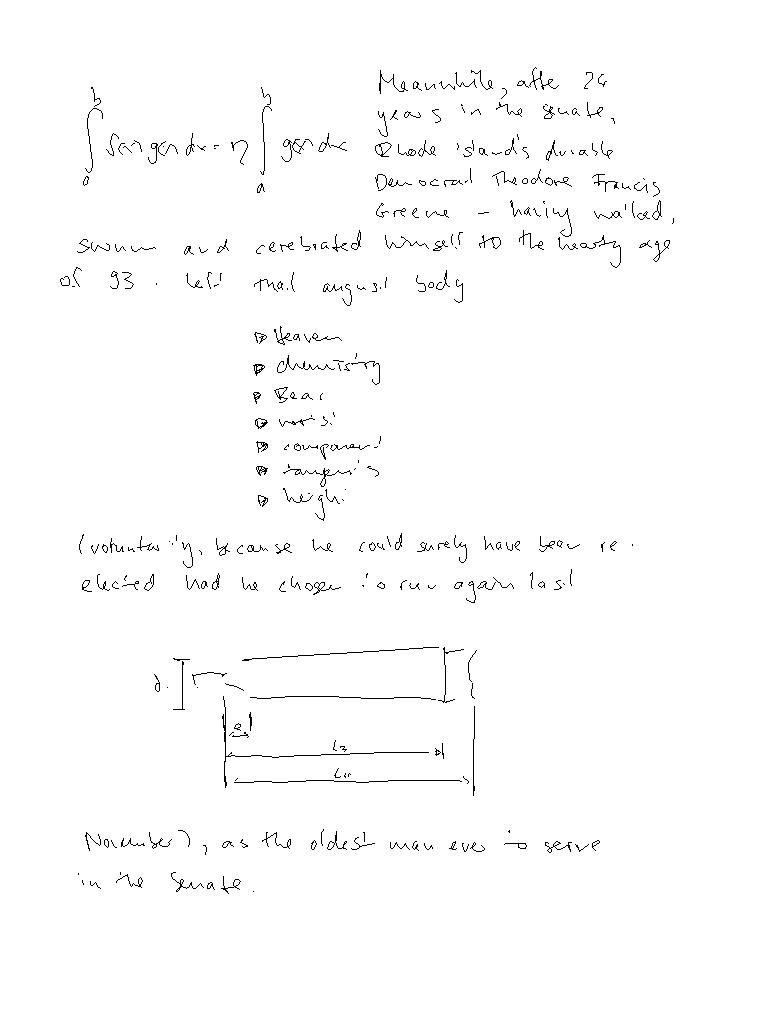 ∫_a^b f(x) g(x) dx = η ∫_a^b g(x) dx
Meanwhile, afte 24
years in the senate,
Rhode island's durable
Democrat Theodore Francis
Greene - having walked,
swum and cerebrated himself to the hearty age
of 93. left that august body
Heaven
chemistry
Bear
component
tangents
height
(voluntarily, because he could surely have been re-
elected had he chosen to run again last
d.
e
L3
November), as the oldest man ever to serve
in the Senate.